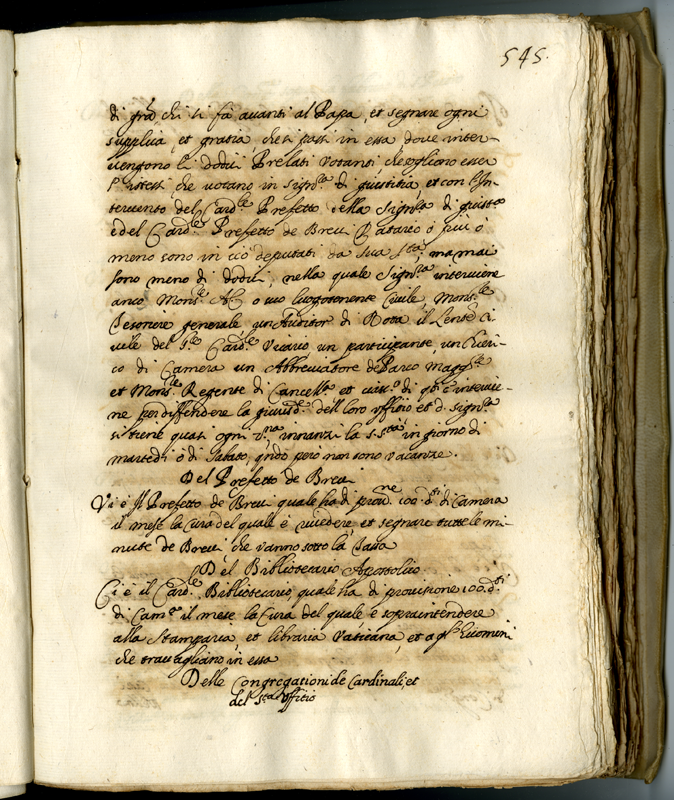 545.
di gra, che si fa auanti al Papa, et segnare ogni
supplica, et gratia, che si passi in essa, doue inter-
uengono li dodici Prelati Votanti, che uogliono esser
l'istessi, che uotano in Sign.ra di giustitia, et con l'In-
teruento del Card.le Prefetto della Sign.ra di giust.a
e del Card.le Prefetto de Breui Datario o più o
meno sono in ciò deputati da sua S.tà, ma mai
sono meno di dodici, nella quale Sign.ra interuiene
anco Mons.re AC o suo luogotenente Ciuile, Mons.re
Tesoriere generale, un Auditor di Rota il Ci-
uile del S.re Card.le Vicario un participante, un Chieri-
co di Camera un Abbreuiatore de Parco Magg.re
et Mons.re Regente di Cancell.a et ciasc.o di q.ti c'interuie-
ne per diffendere la giurisd.e dell loro offitio et d. Sign.ra
si tiene quasi ogni innanzi la S.S.tà in giorno di
martedì ò di Sabato, q.ndo però non sono uacanze.
Del Prefetto de Breui
Vi è Il Prefetto de Breui quale ha di prou.ne 100 d.ti di Camera
il mese la Cura del quale è riuedere et segnare tutte le mi-
nute de Breui che vanno sotto la Tassa
Del Bibliotecario Apostolico
Ci è il Card.le Bibliotecario, quale ha di prouisione 100 d.ti
di Cam.a il mese la Cura del quale è sopraintendere
alla Stamparia, et libraria Vaticana, et a gl'huomini
che trauagliano in essa
Delle Congregationi de Cardinali, et
del S.to Offitio